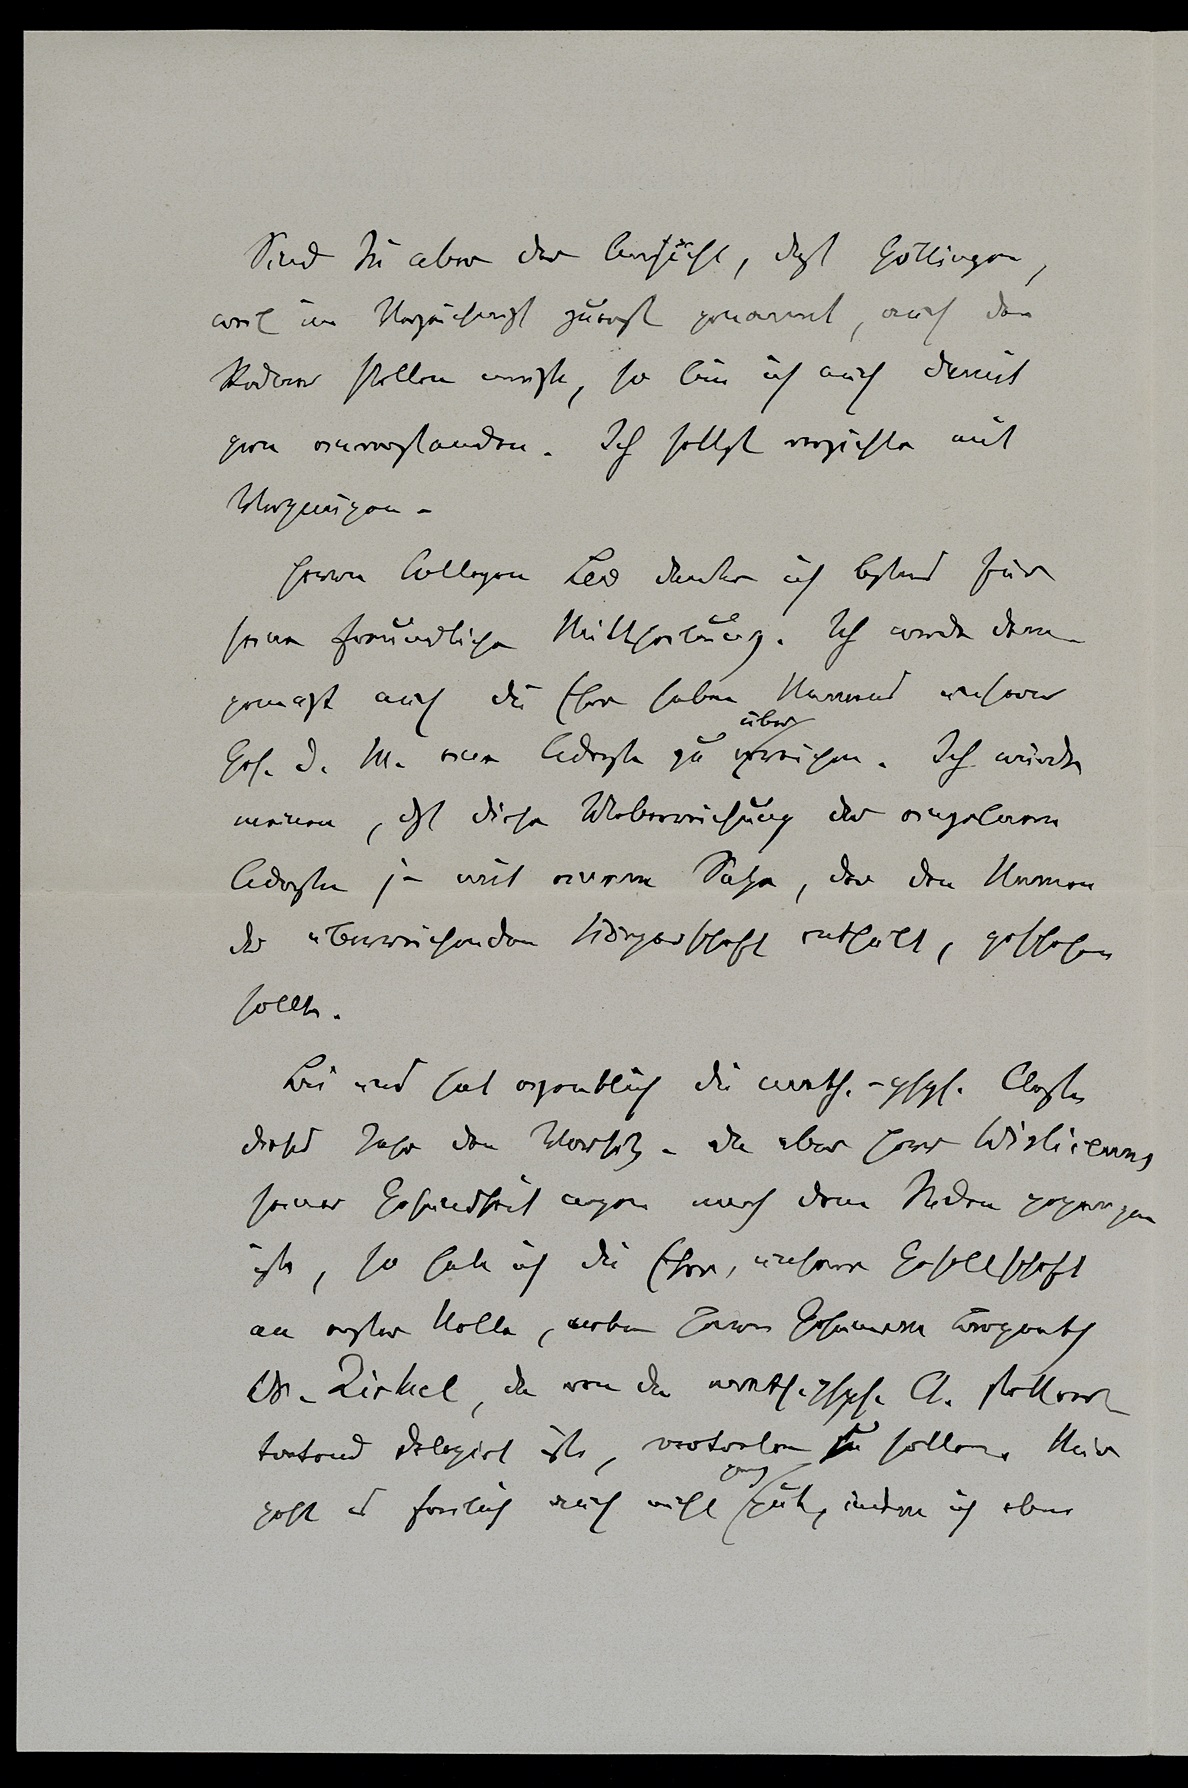 Sind Sie aber der Ansicht, daß Göttingen,
weil im Verzeichniß zuerst genannt, auch den
Redner stellen müßte, so bin ich auch damit
gern einverstanden. Ich selbst verzichte mit
Vergnügen.
Herrn Collegen Leo danke ich bestens für
seine freundliche Mittheilung. Ich werde dem-
gemäß auch die Ehre haben Namens unserer
Ges. d. W. eine Adresse zu überreichen. Ich würde
meinen, daß diese Ueberreichung der einzelnen
Adressen je mit einem Satze, der den Namen
der überreichenden Körperschaft enthält, geschehen
sollte.
Bei uns hat eigentlich die math.-phys. Classe
dieses Jahr den Vorsitz. Da aber Herr Wislicenus
seiner Gesundheit wegen nach dem Süden gegangen
ist, so habe ich die Ehre, unsere Gesellschaft
an erster Stelle, neben Herrn Geheimen Bergrath
Dr. Zirkel, der von der math.-phys. Cl. stellver-
tretend delegirt ist, vertreten zu sollen. Mir
geht es freilich auch nicht ganz gut, indem ich eben